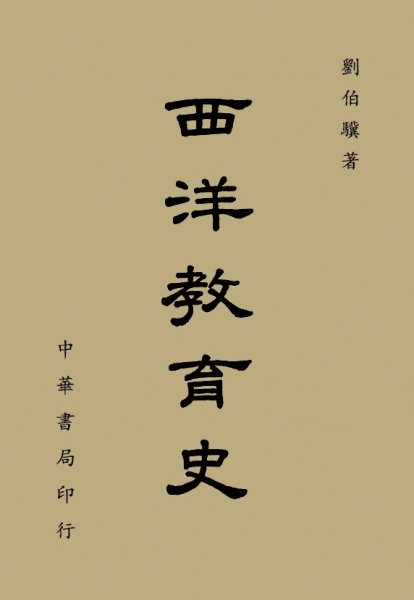 劉伯驥著
西洋教育史
中華書局印行